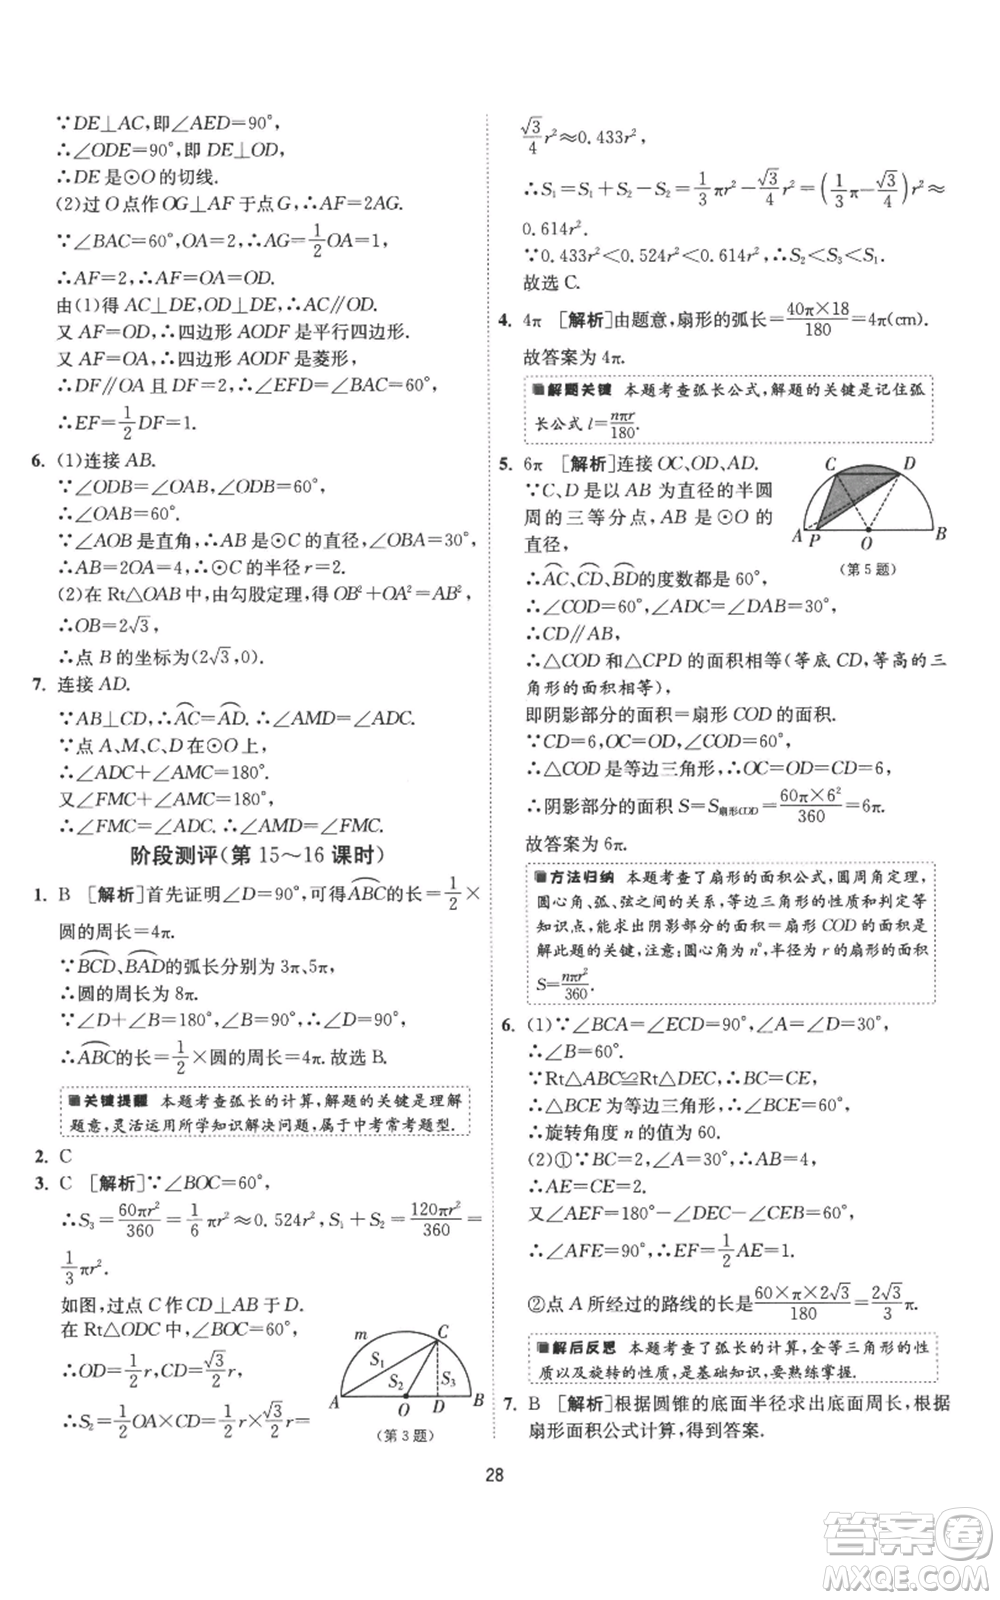 ∵DE⊥AC,即∠AED=90°,
∴∠ODE=90°,即 DE⊥OD,
∴DE 是⊙O 的切线.
(2)过 O 点作 OG⊥AF 于点 G,∴AF=2AG.
∵∠BAC=60°,OA=2,∴AG=1/2OA=1,
∴AF=2,∴AF=OA=OD.
由(1)得 AC⊥DE,OD⊥DE,∴AC∥OD.
又 AF=OD,∴四边形 AODF 是平行四边形.
又 AF=OA,∴四边形 AODF 是菱形,
∴DF∥OA 且 DF=2,∴∠EFD=∠BAC=60°,
∴EF=1/2DF=1.
6. (1)连接 AB.
∵∠ODB=∠OAB,∠ODB=60°,
∴∠OAB=60°.
∵∠AOB 是直角,∴AB 是⊙C 的直径,∠OBA=30°,
∴AB=2OA=4,∴⊙C 的半径 r=2.
(2)在 Rt△OAB 中,由勾股定理,得 OB²+OA²=AB²,
∴OB=2√3.
∴点 B 的坐标为(2√3,0).
7. 连接 AD.
∵AB⊥CD,∴⌒AC=⌒AD.∴∠AMD=∠ADC.
∵点 A、M、C、D 在⊙O 上,
∴∠ADC+∠AMC=180°.
又∠FMC+∠AMC=180°,
∴∠FMC=∠ADC.∴∠AMD=∠FMC.
阶段测评(第 15～16 课时)
1. B [解析]首先证明∠D=90°,可得⌒ABC=1/2×
圆的周长=4π.
∵⌒BCD、⌒BAD的弧长分别为 3π、5π,
∴圆的周长为 8π.
∵∠D+∠B=180°,∠D=∠B,∴∠D=90°,
∴⌒ABC的长=1/2×圆的周长=4π.故选 B.
关键提醒 本题考查弧长的计算,解题的关键是理解
题意,灵活运用所学知识解决问题,属于中考常考题型.
2. C
3. C [解析]∵∠BOC=60°,
∴S₃=60πr²/360=1/6πr²≈0.524r²,S₁+S₂=120πr²/360=
1/3πr².
如图,过点 C 作 CD⊥AB 于 D.
在 Rt△ODC 中,∠BOC=60°,
∴OD=1/2r,CD=√3/2r,
∴S₂=1/2OA×CD=1/2r×√3/2r=
m C
S₁ S₃
S₂
A O D B
(第 3 题)
√3/4r²≈0.433r²,
∴S₁=S₁+S₂−S₂=1/3πr²−√3/4r²=(1/3π−√3/4)r²≈
0.614r².
∵0.433r²<0.524r²<0.614r²,∴S₂<S₃<S₁.
故选 C.
4. 4π [解析]由题意,扇形的弧长=40π×18/180=4π(cm).
故答案为 4π.
解题关键 本题考查弧长公式,解题的关键是记住弧
长公式 l=nπr/180.
5. 6π [解析]连接 OC、OD、AD.
∵C、D 是以 AB 为直径的半圆
周的三等分点,AB 是⊙O 的
直径,
C D
A P O B
(第 5 题)
∴⌒AC、⌒CD、⌒BD的度数都是 60°,
∴∠COD=60°,∠ADC=∠DAB=30°,
∴CD∥AB,
∴△COD 和△CPD 的面积相等(等底 CD,高的三
角形的面积相等),
即阴影部分的面积=扇形 COD 的面积.
∵CD=6,OC=OD,∠COD=60°,
∴△COD 是等边三角形,∴OC=OD=CD=6,
∴阴影部分的面积 S=S扇形COD=60π×6²/360=6π.
故答案为 6π.
方法归纳 本题考查了扇形的面积公式,圆周角定理,
圆心角、弧、弦之间的关系,等边三角形的性质和判定等
知识点,能求出阴影部分的面积=扇形 COD 的面积是
解此题的关键,注意:圆心角为 n°,半径为 r 的扇形的面积
S=nπr²/360.
6. (1)∵∠BCA=∠ECD=90°,∠A=∠D=30°,
∴∠B=60°.
∵Rt△ABC≌Rt△DEC,∴BC=CE,
∴△BCE 为等边三角形,∴∠BCE=60°,
∴旋转角度 n 的值为 60.
(2)①∵BC=2,∠A=30°,∴AB=4,
∴AE=CE=2.
又∠AEF=180°−∠DEC−∠CEB=60°,
∴∠AFE=90°,∴EF=1/2AE=1.
②点 A 所经过的路线的长是60×π×2√3/180=2√3/3π.
解后反思 本题考查了弧长的计算,全等三角形的性
质以及旋转的性质,是基础知识,要熟练掌握.
7. B [解析]根据圆锥的底面半径求出底面周长,根据
扇形面积公式计算,得到答案.
28
答案圈
MXQE.COM